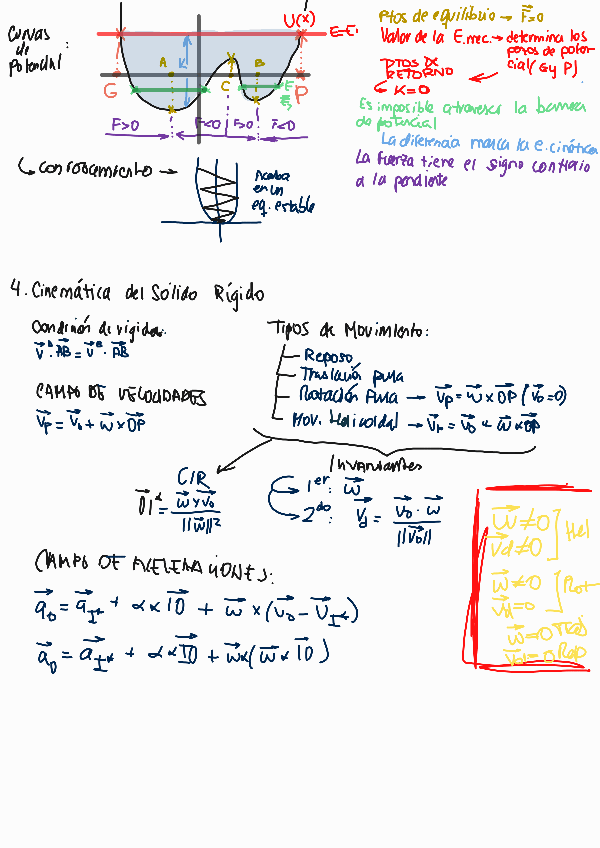 Curvas de Potencial:
U(x)
E=E₁
A
K
B
C
G
P
E=
E₂
F>0
F<0
F>0
F<0
Ptos de equilibrio → F⃗=0
Valor de la E.mec. → determina los pozos de potencial (G y P)
PTOS DE RETORNO
↳ K=0
Es imposible atravesar la barrera de potencial
La diferencia marca la e. cinética
La fuerza tiene el signo contrario a la pendiente
↳ con rozamiento →
Acaba en un eq. estable
4. Cinemática del Sólido Rígido
Condición de rigidez:
v⃗ᴬ·AB⃗ = v⃗ᴮ·AB⃗
CAMPO DE VELOCIDADES
v⃗p = v⃗₀ + w⃗ × OP⃗
Tipos de Movimiento:
Reposo
Traslación pura
Rotación Pura → v⃗p = w⃗ × OP⃗ (v⃗₀=0)
Mov. Helicoidal → v⃗p = v⃗₀ + w⃗ × OP⃗
CIR
OI⃗* = w⃗ × v⃗₀ / ||w⃗||²
Invariantes
1er: w⃗
2do: v⃗d = v⃗₀ · w⃗ / ||v⃗₀||
w⃗ ≠ 0
v⃗d ≠ 0 ] Hel
w⃗ ≠ 0
v⃗d = 0 ] Rot
w⃗ = 0 Tras
v⃗d = 0 Rep
CAMPO DE ACELERACIONES:
a⃗₀ = a⃗I* + α × IO⃗ + w⃗ × (v⃗₀ − v⃗I*)
a⃗₀ = a⃗I* + α × IO⃗ + w⃗ × (w⃗ × IO⃗)